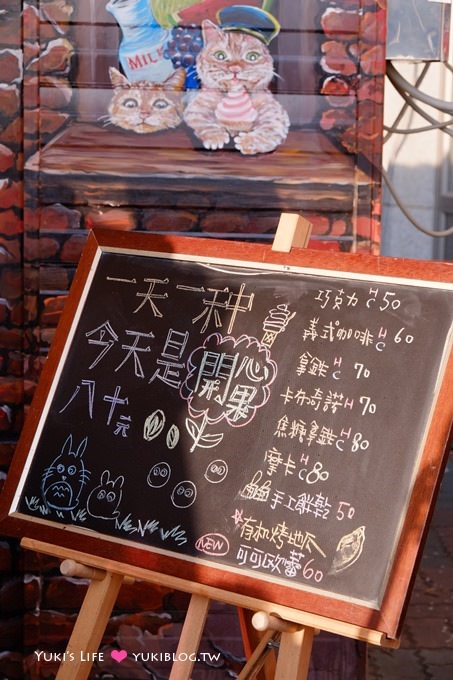 MILK
一天一种
今天是開心果
八十元
巧克力 H C 50
義式咖啡 H C 60
拿鉄 H C 70
卡布奇諾 H 70
焦糖拿鉄 H C 80
摩卡 H C 80
手工餅乾 50
有机烤地瓜
NEW
可可欧蕾 60
YUKI'S LIFE ♥ YUKIBLOG.TW